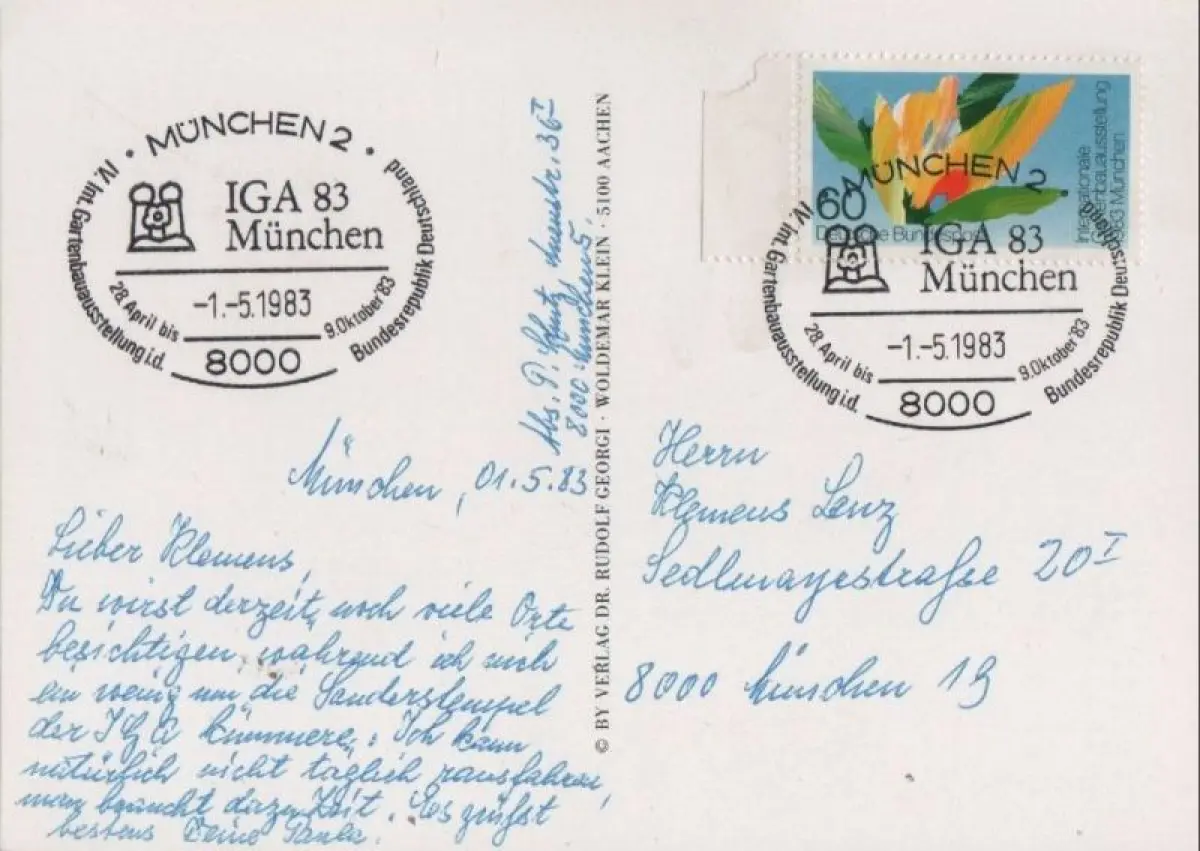 MÜNCHEN 2
IV. Int. Gartenbauausstellung i.d. Bundesrepublik Deutschland
IGA 83
München
28. April bis 9. Oktober '83
-1.-5.1983
8000
Abs. P. 36 I
8000 München 5
© BY VERLAG DR. RUDOLF GEORGI · WOLDEMAR KLEIN · 5100 AACHEN
60
Deutsche Bundespost
Internationale
Gartenbauausstellung
1983 München
MÜNCHEN 2
IV. Int. Gartenbauausstellung i.d. Bundesrepublik Deutschland
IGA 83
München
28. April bis 9. Oktober '83
-1.-5.1983
8000
München, 01.5.83
Lieber Klemens,
Du wirst derzeit noch viele Orte
besichtigen, während ich mich
ein wenig um die Sonderstempel
der IGA kümmere. Ich kann
natürlich nicht täglich rausfahren,
man braucht dazu Zeit. Es grüßt
bestens Deine Paula.
Herrn
Klemens Lenz
Sedlmayrstraße 20 I
8000 München 19